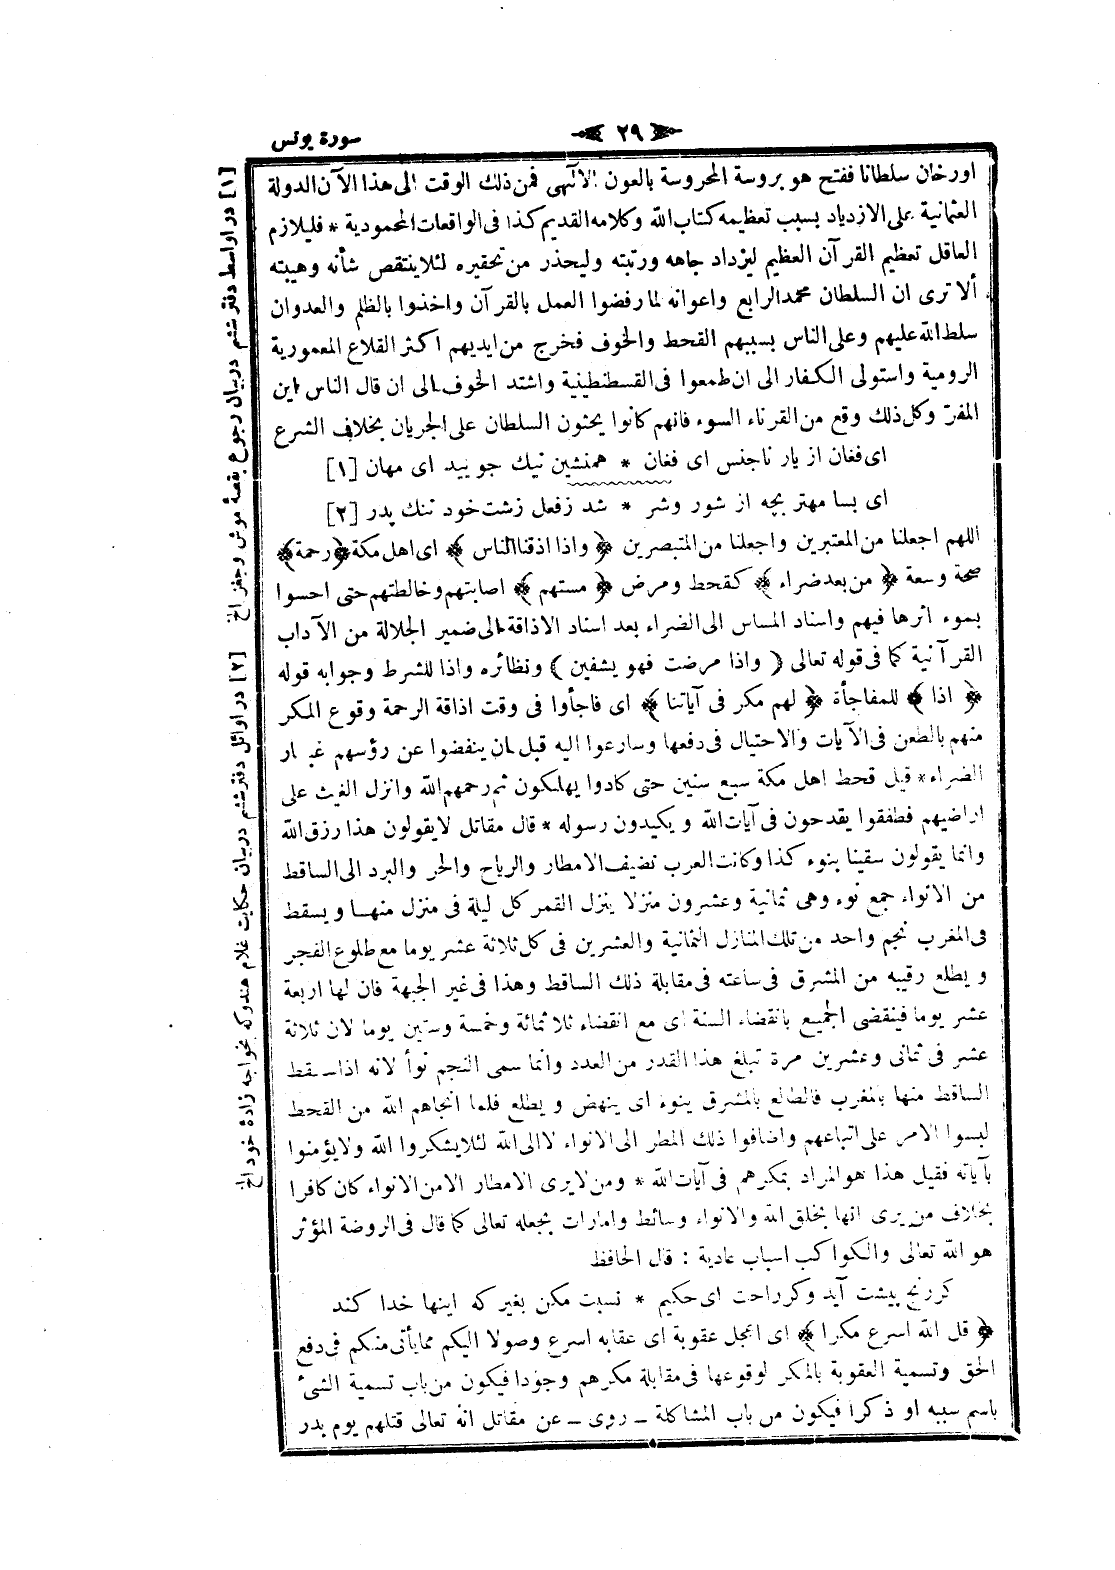 سورة يونس
﴿ ٢٩ ﴾
اورخان سلطانا ففتح هو بروسة المحروسة بالعون الالهى فمن ذلك الوقت الى هذا الآن الدولة
العثمانية على الازدياد بسبب تعظيمه كتاب الله وكلامه القديم كذا فى الواقعات المحمودية * فليلازم
العاقل تعظيم القرآن العظيم ليزداد جاهه ورتبته وليحذر من تحقيره لئلا ينتقص شأنه وهيبته
ألا ترى ان السلطان محمد الرابع واعوانه لما رفضوا العمل بالقرآن واخذوا بالظلم والعدوان
سلط الله عليهم وعلى الناس بسببهم القحط والخوف فخرج من ايديهم اكثر القلاع المعمورية
الرومية واستولى الكفار الى ان طمعوا فى القسطنطينية واشتد الخوف الى ان قال الناس اين
المفر وكل ذلك وقع من القرناء السوء فانهم كانوا يحثون السلطان على الجريان بخلاف الشرع
اى فغان از يار ناجنس اى فغان * همنشين نيك جوييد اى مهان [١]
اى بسا مهتر بچه از شور وشر * شد زفعل زشت خود ننك پدر [٢]
اللهم اجعلنا من المعتبرين واجعلنا من المتبصرين ﴿ واذا اذقنا الناس ﴾ اى اهل مكة ﴿ رحمة ﴾
صحة وسعة ﴿ من بعد ضراء ﴾ كقحط ومرض ﴿ مستهم ﴾ اصابتهم وخالطتهم حتى احسوا
بسوء اثرها فيهم واسناد المساس الى الضراء بعد اسناد الاذاقة الى ضمير الجلالة من الآداب
القرآنية كما فى قوله تعالى ( واذا مرضت فهو يشفين ) ونظائره واذا للشرط وجوابه قوله
﴿ اذا ﴾ للمفاجأة ﴿ لهم مكر فى آياتنا ﴾ اى فاجأوا فى وقت اذاقة الرحمة وقوع المكر
منهم بالطعن فى الآيات والاحتيال فى دفعها وسارعوا اليه قبل ان ينفضوا عن رؤسهم غبار
الضراء * قيل قحط اهل مكة سبع سنين حتى كادوا يهلكون ثم رحمهم الله وانزل الغيث على
اراضيهم فطفقوا يقدحون فى آيات الله ويكيدون رسوله * قال مقاتل لا يقولون هذا رزق الله
وانما يقولون سقينا بنوء كذا وكانت العرب تضيف الامطار والرياح والحر والبرد الى الساقط
من الانواء جمع نوء وهى ثمانية وعشرون منزلا ينزل القمر كل ليلة فى منزل منها ويسقط
فى المغرب نجم واحد من تلك المنازل الثمانية والعشرين فى كل ثلاثة عشر يوما مع طلوع الفجر
ويطلع رقيبه من المشرق فى ساعته فى مقابلة ذلك الساقط وهذا فى غير الجبهة فان لها اربعة
عشر يوما فينقضى الجميع بانقضاء السنة اى مع انقضاء ثلاثمائة وخمسة وستين يوما لان ثلاثة
عشر فى ثمانى وعشرين مرة تبلغ هذا القدر من العدد وانما سمى النجم نوأ لانه اذا سقط
الساقط منها بالمغرب فالطالع بالمشرق ينوء اى ينهض ويطلع فلما انجاهم الله من القحط
لبسوا الامر على اتباعهم واضافوا ذلك المطر الى الانواء لا الى الله لئلا يشكروا الله ولا يؤمنوا
بآياته فقيل هذا هو المراد بمكرهم فى آيات الله * ومن لا يرى الامطار الا من الانواء كان كافرا
بخلاف من يرى انها بخلق الله والانواء وسائط وامارات بجعله تعالى كما قال فى الروضة المؤثر
هو الله تعالى والكواكب اسباب عادية : قال الحافظ
كر رنج پيشت آيد وكر راحت اى حكيم * نسبت مكن بغير كه اينها خدا كند
﴿ قل الله اسرع مكرا ﴾ اى اعجل عقوبة اى عقابه اسرع وصولا اليكم مما يأتى منكم فى دفع
الحق وتسمية العقوبة بالمكر لوقوعها فى مقابلة مكرهم وجودا فيكون من باب تسمية الشئ
باسم سببه او ذكرا فيكون من باب المشاكلة ـ روى ـ عن مقاتل انه تعالى قتلهم يوم بدر
[١] در اواسط دفتر ششم دربيان رجوع بقصۀ موش وجغز الخ
[٢] در اوائل دفتر ششم دربيان حكايت غلام هندو كه بخواجه زادۀ خود الخ